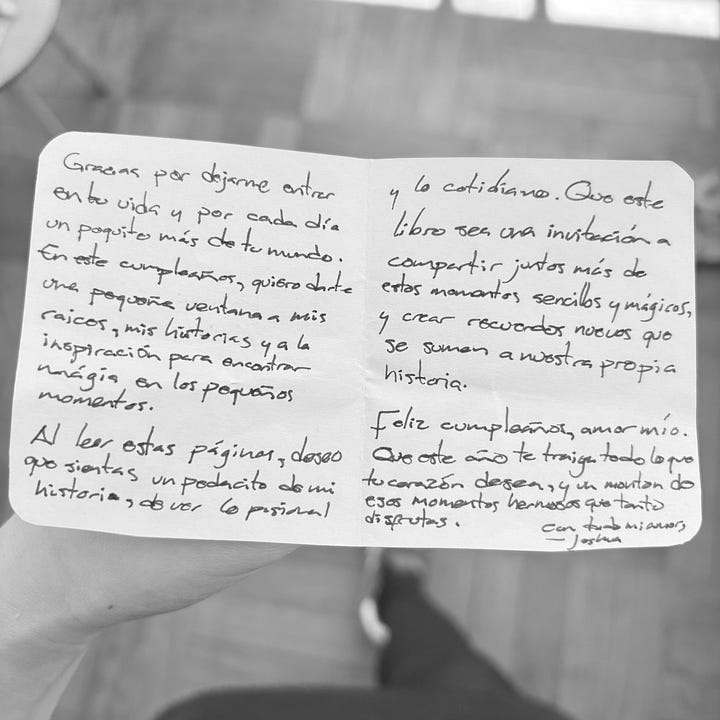 Gracias por dejarme entrar
en tu vida y por cada día
un poquito más de tu mundo.
En este cumpleaños, quiero darte
una pequeña ventana a mis
raíces, mis historias y a la
inspiración para encontrar
mágia en los pequeños
momentos.
Al leer estas páginas, deseo
que sientas un pedacito de mi
historia, de ver lo
y lo cotidiano. Que este
libro sea una invitación a
compartir juntos más de
estos momentos sencillos y mágicos,
y crear recuerdos nuevos que
se sumen a nuestra propia
historia.
Feliz cumpleaños, amor mío.
Que este año te traiga todo lo que
tu corazón desea, y un montón de
esos momentos hermosos que tanto
disfrutas.
Con todo mi amor,
— Joshua